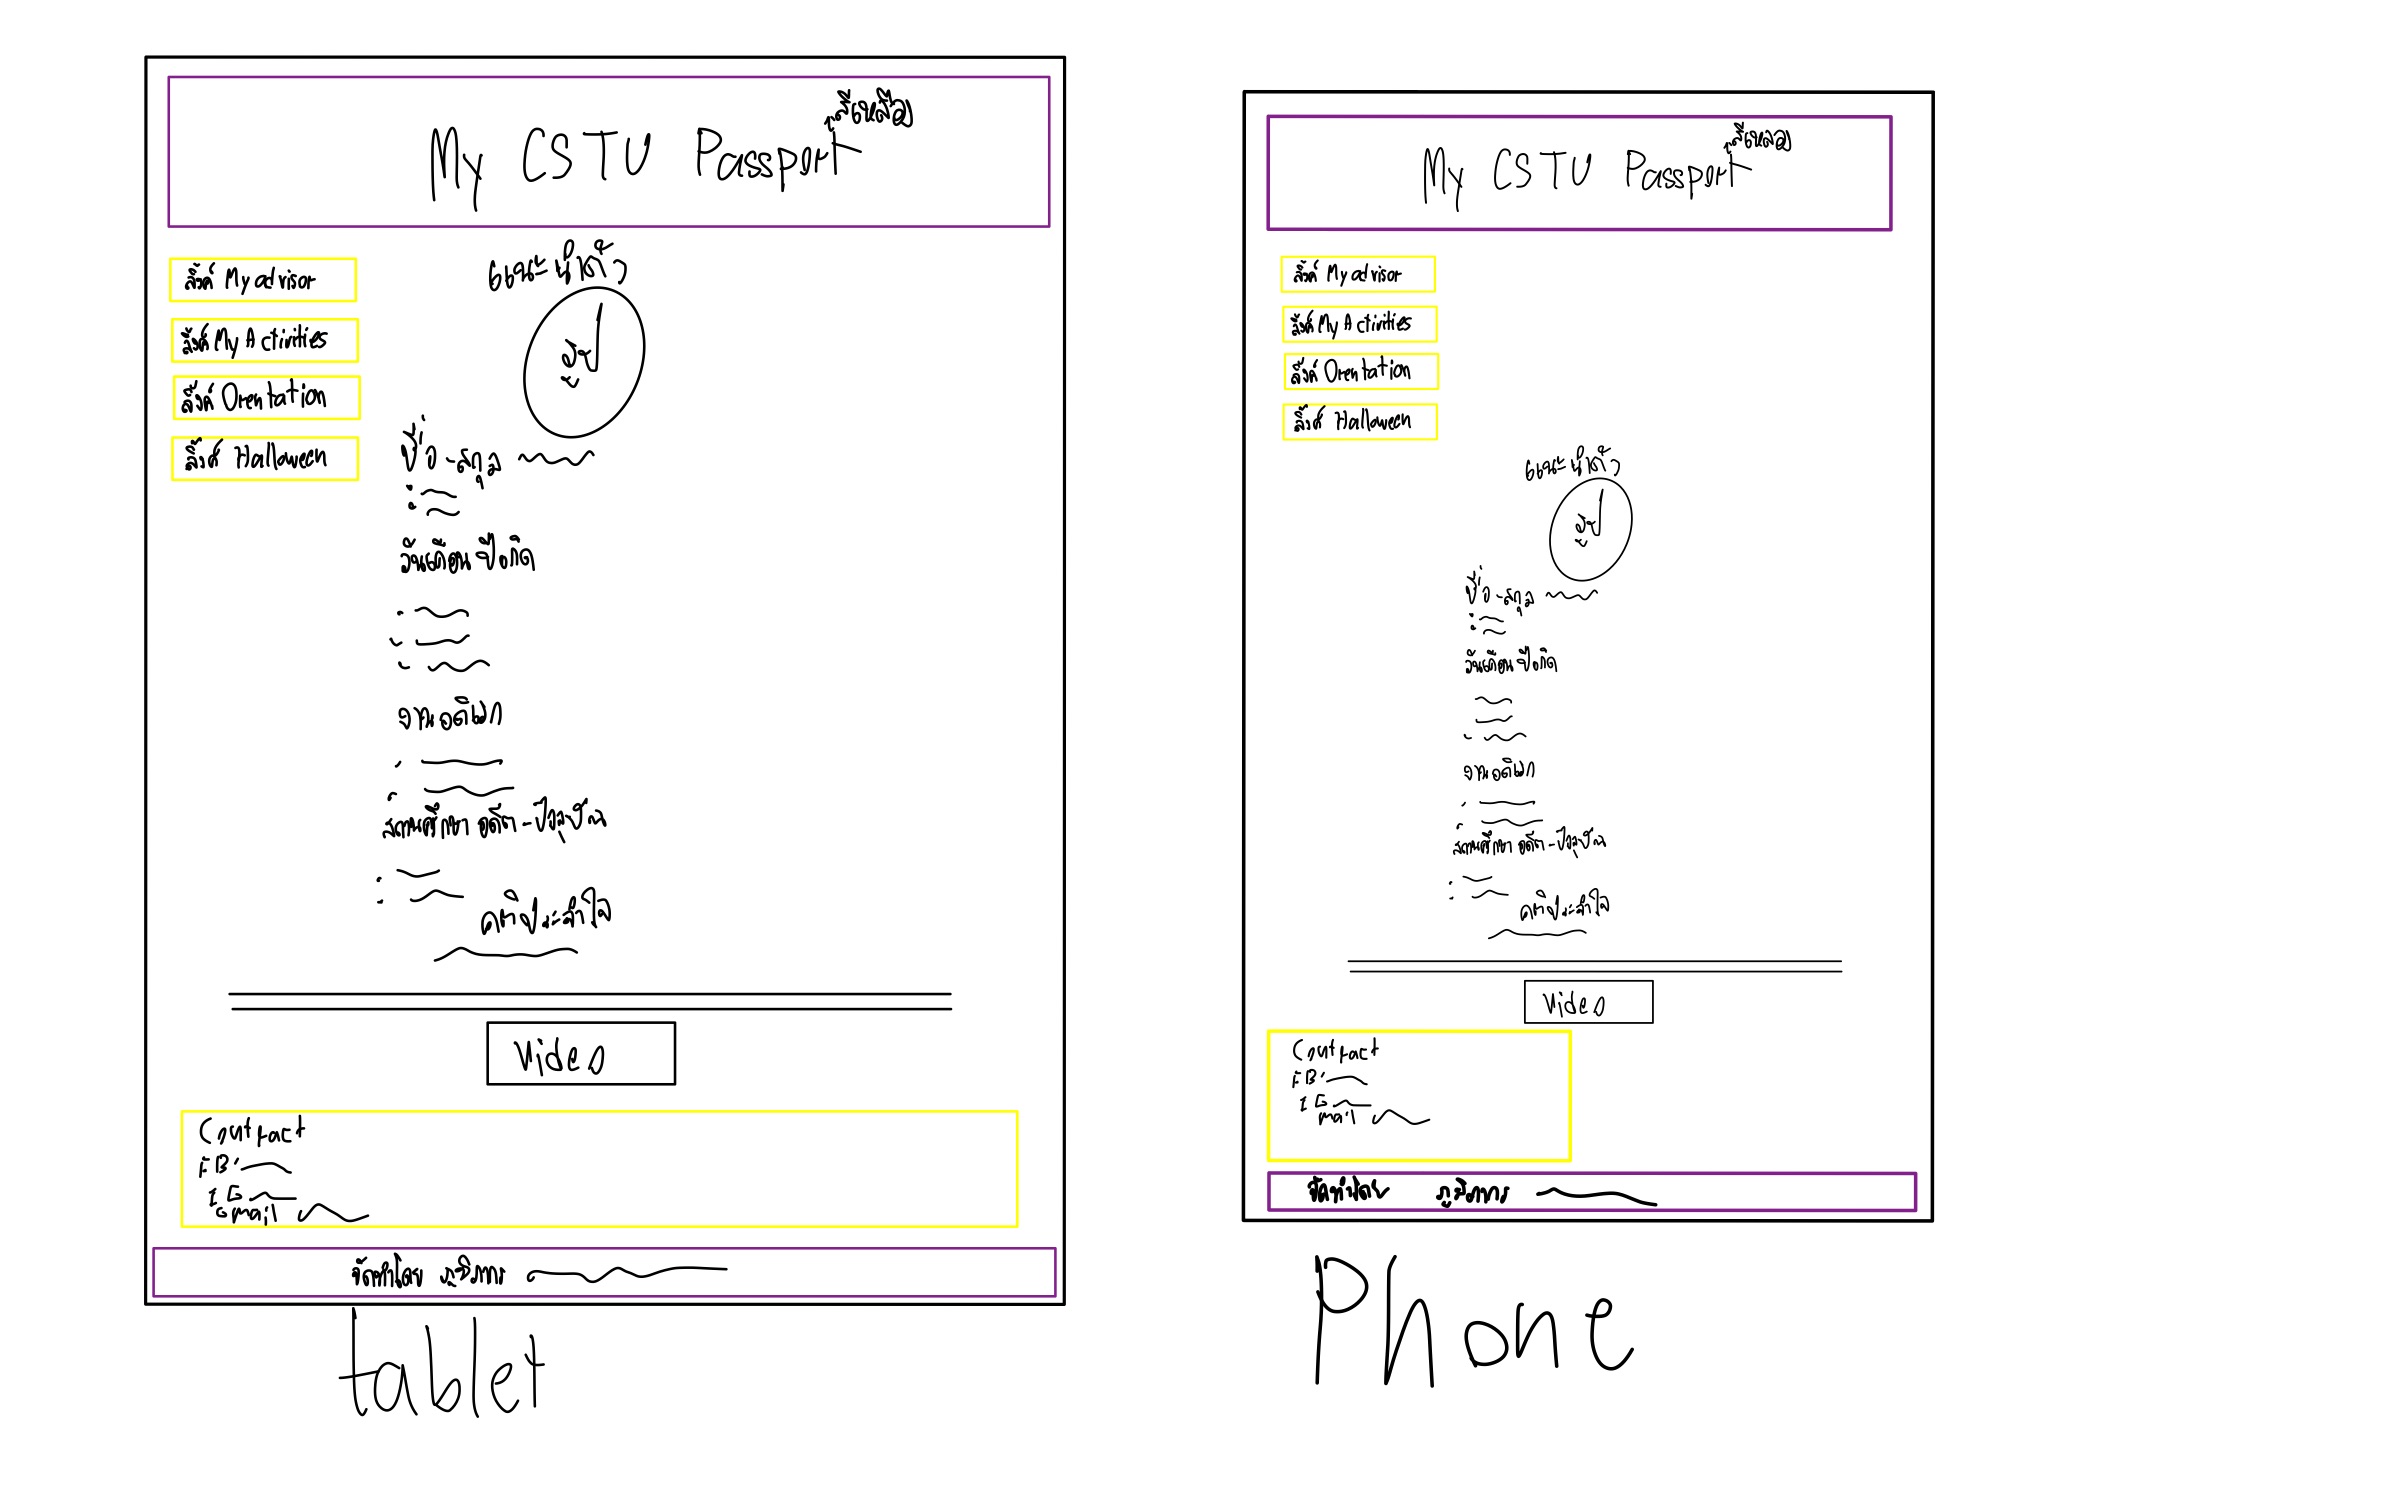 My CSTU Passport
สีเหลือง
แนะนำตัว
รูป
ลิ้งค์ My advisor
ลิ้งค์ My Activities
ลิ้งค์ Orentation
ลิ้งค์ Halloween
ชื่อ-สกุล
วันเดือนปีเกิด
งานอดิเรก
สถานศึกษา อดีต-ปัจจุบัน
คติประจำใจ
Video
Contract
FB:
IG
Gmail
จัดทำโดย ภูริภากร
tablet
My CSTU Passport
สีเหลือง
ลิ้งค์ My advisor
ลิ้งค์ My Activities
ลิ้งค์ Orentation
ลิ้งค์ Halloween
แนะนำตัว
รูป
ชื่อ-สกุล
วันเดือนปีเกิด
งานอดิเรก
สถานศึกษา อดีต-ปัจจุบัน
คติประจำใจ
Video
Contract
FB:
IG
mail
จัดทำโดย
Phone